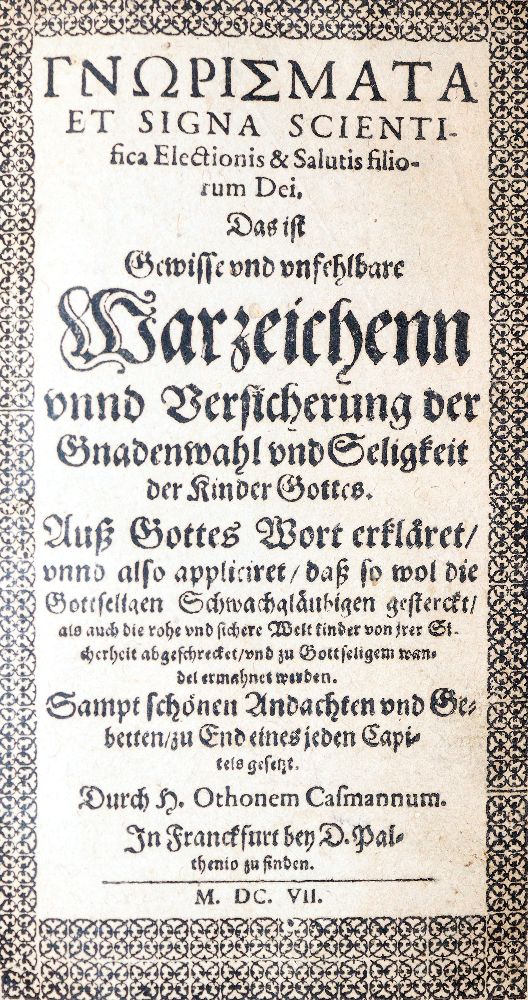 ΓΝΩΡΙΣΜΑΤΑ
ET SIGNA SCIENTI-
fica Electionis & Salutis filio-
rum Dei.
Das ist
Gewisse vnd vnfehlbare
Warzeichenn
vnnd Versicherung der
Gnadenwahl vnd Seligkeit
der Kinder Gottes.
Auß Gottes Wort erkläret/
vnnd also appliciret/ daß so wol die
Gottseligen Schwachgläubigen gesterckt/
als auch die rohe vnd sichere Welt kinder von jrer Si-
cherheit abgeschrecket/ vnd zu Gottseligem wan-
del ermahnet werden.
Sampt schönen Andachten vnd Ge-
betten/ zu End eines jeden Capi-
tels gesetzt.
Durch H. Othonem Casmannum.
In Franckfurt bey D. Pal-
thenio zu finden.
M. DC. VII.